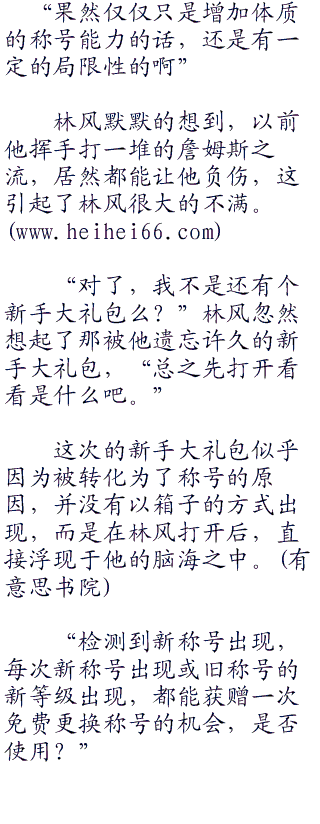 “果然仅仅只是增加体质
的称号能力的话，还是有一
定的局限性的啊”
林风默默的想到，以前
他挥手打一堆的詹姆斯之
流，居然都能让他负伤，这
引起了林风很大的不满。
(www.heihei66.com)
“对了，我不是还有个
新手大礼包么？”林风忽然
想起了那被他遗忘许久的新
手大礼包，“总之先打开看
看是什么吧。”
这次的新手大礼包似乎
因为被转化为了称号的原
因，并没有以箱子的方式出
现，而是在林风打开后，直
接浮现于他的脑海之中。(有
意思书院)
“检测到新称号出现，
每次新称号出现或旧称号的
新等级出现，都能获赠一次
免费更换称号的机会，是否
使用？”